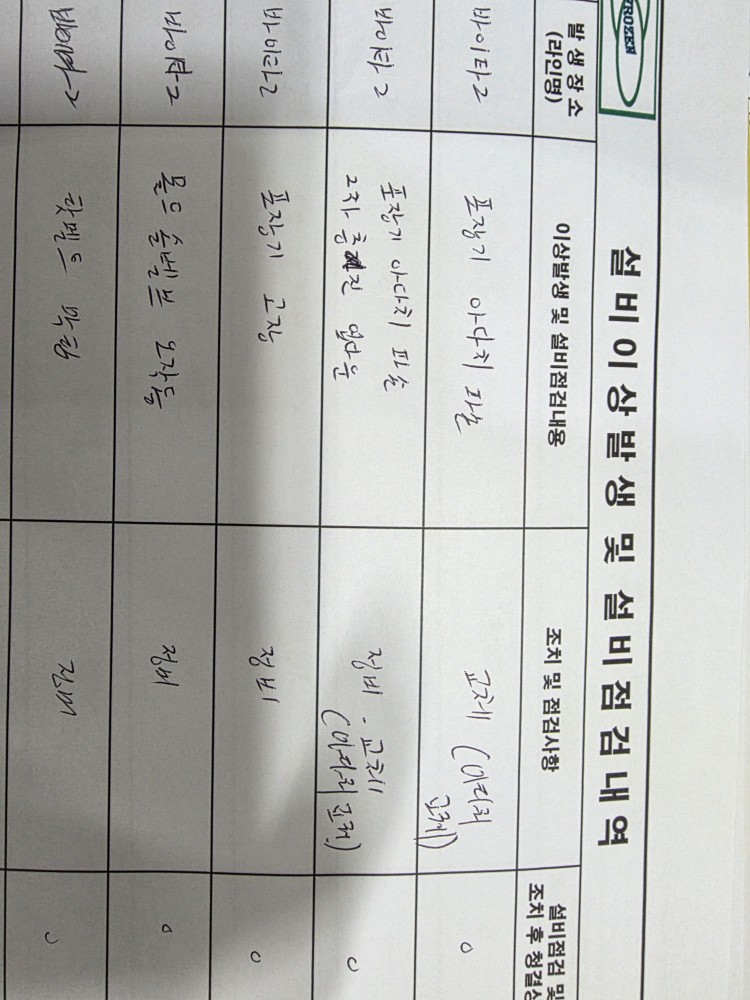 ROZEN
설비이상발생 및 설비점검내역
발생장소
(라인명)
이상발생 및 설비점검내용
조치 및 점검사항
설비점검 및
조치 후 청결상
바이타2
포장기 아다치 파손
교체 (아다치
교체)
바이타2
포장기 아다치 파손
2차
정비 - 교체
(아다치 교체)
바이타2
포장기 고장
정비
바이타2
몰드 솔밸브 오작동
정비
바이타2
정비